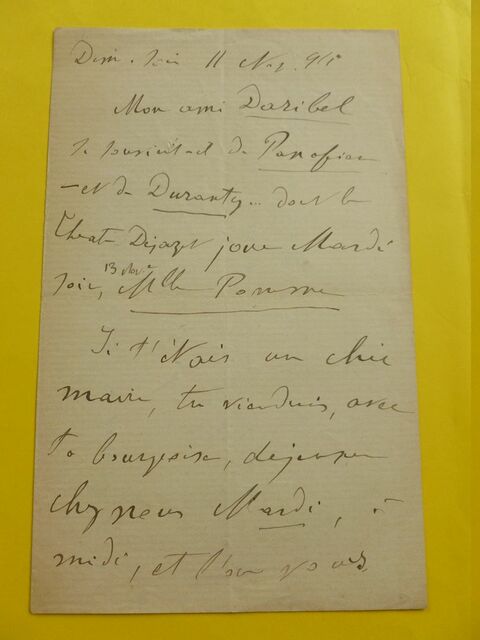 Dim. soir 11 Nov.
Mon ami Daribel
se souvient-il de
– et de Duranty... dont le
Théâtre Déjazet joue Mardi
soir, 13 Nov. Mlle Pomme
Si t'étais un chic
marin, tu viendrais, avec
ta bourgeoise, déjeuner
chez nous Mardi, à
midi, et l'on